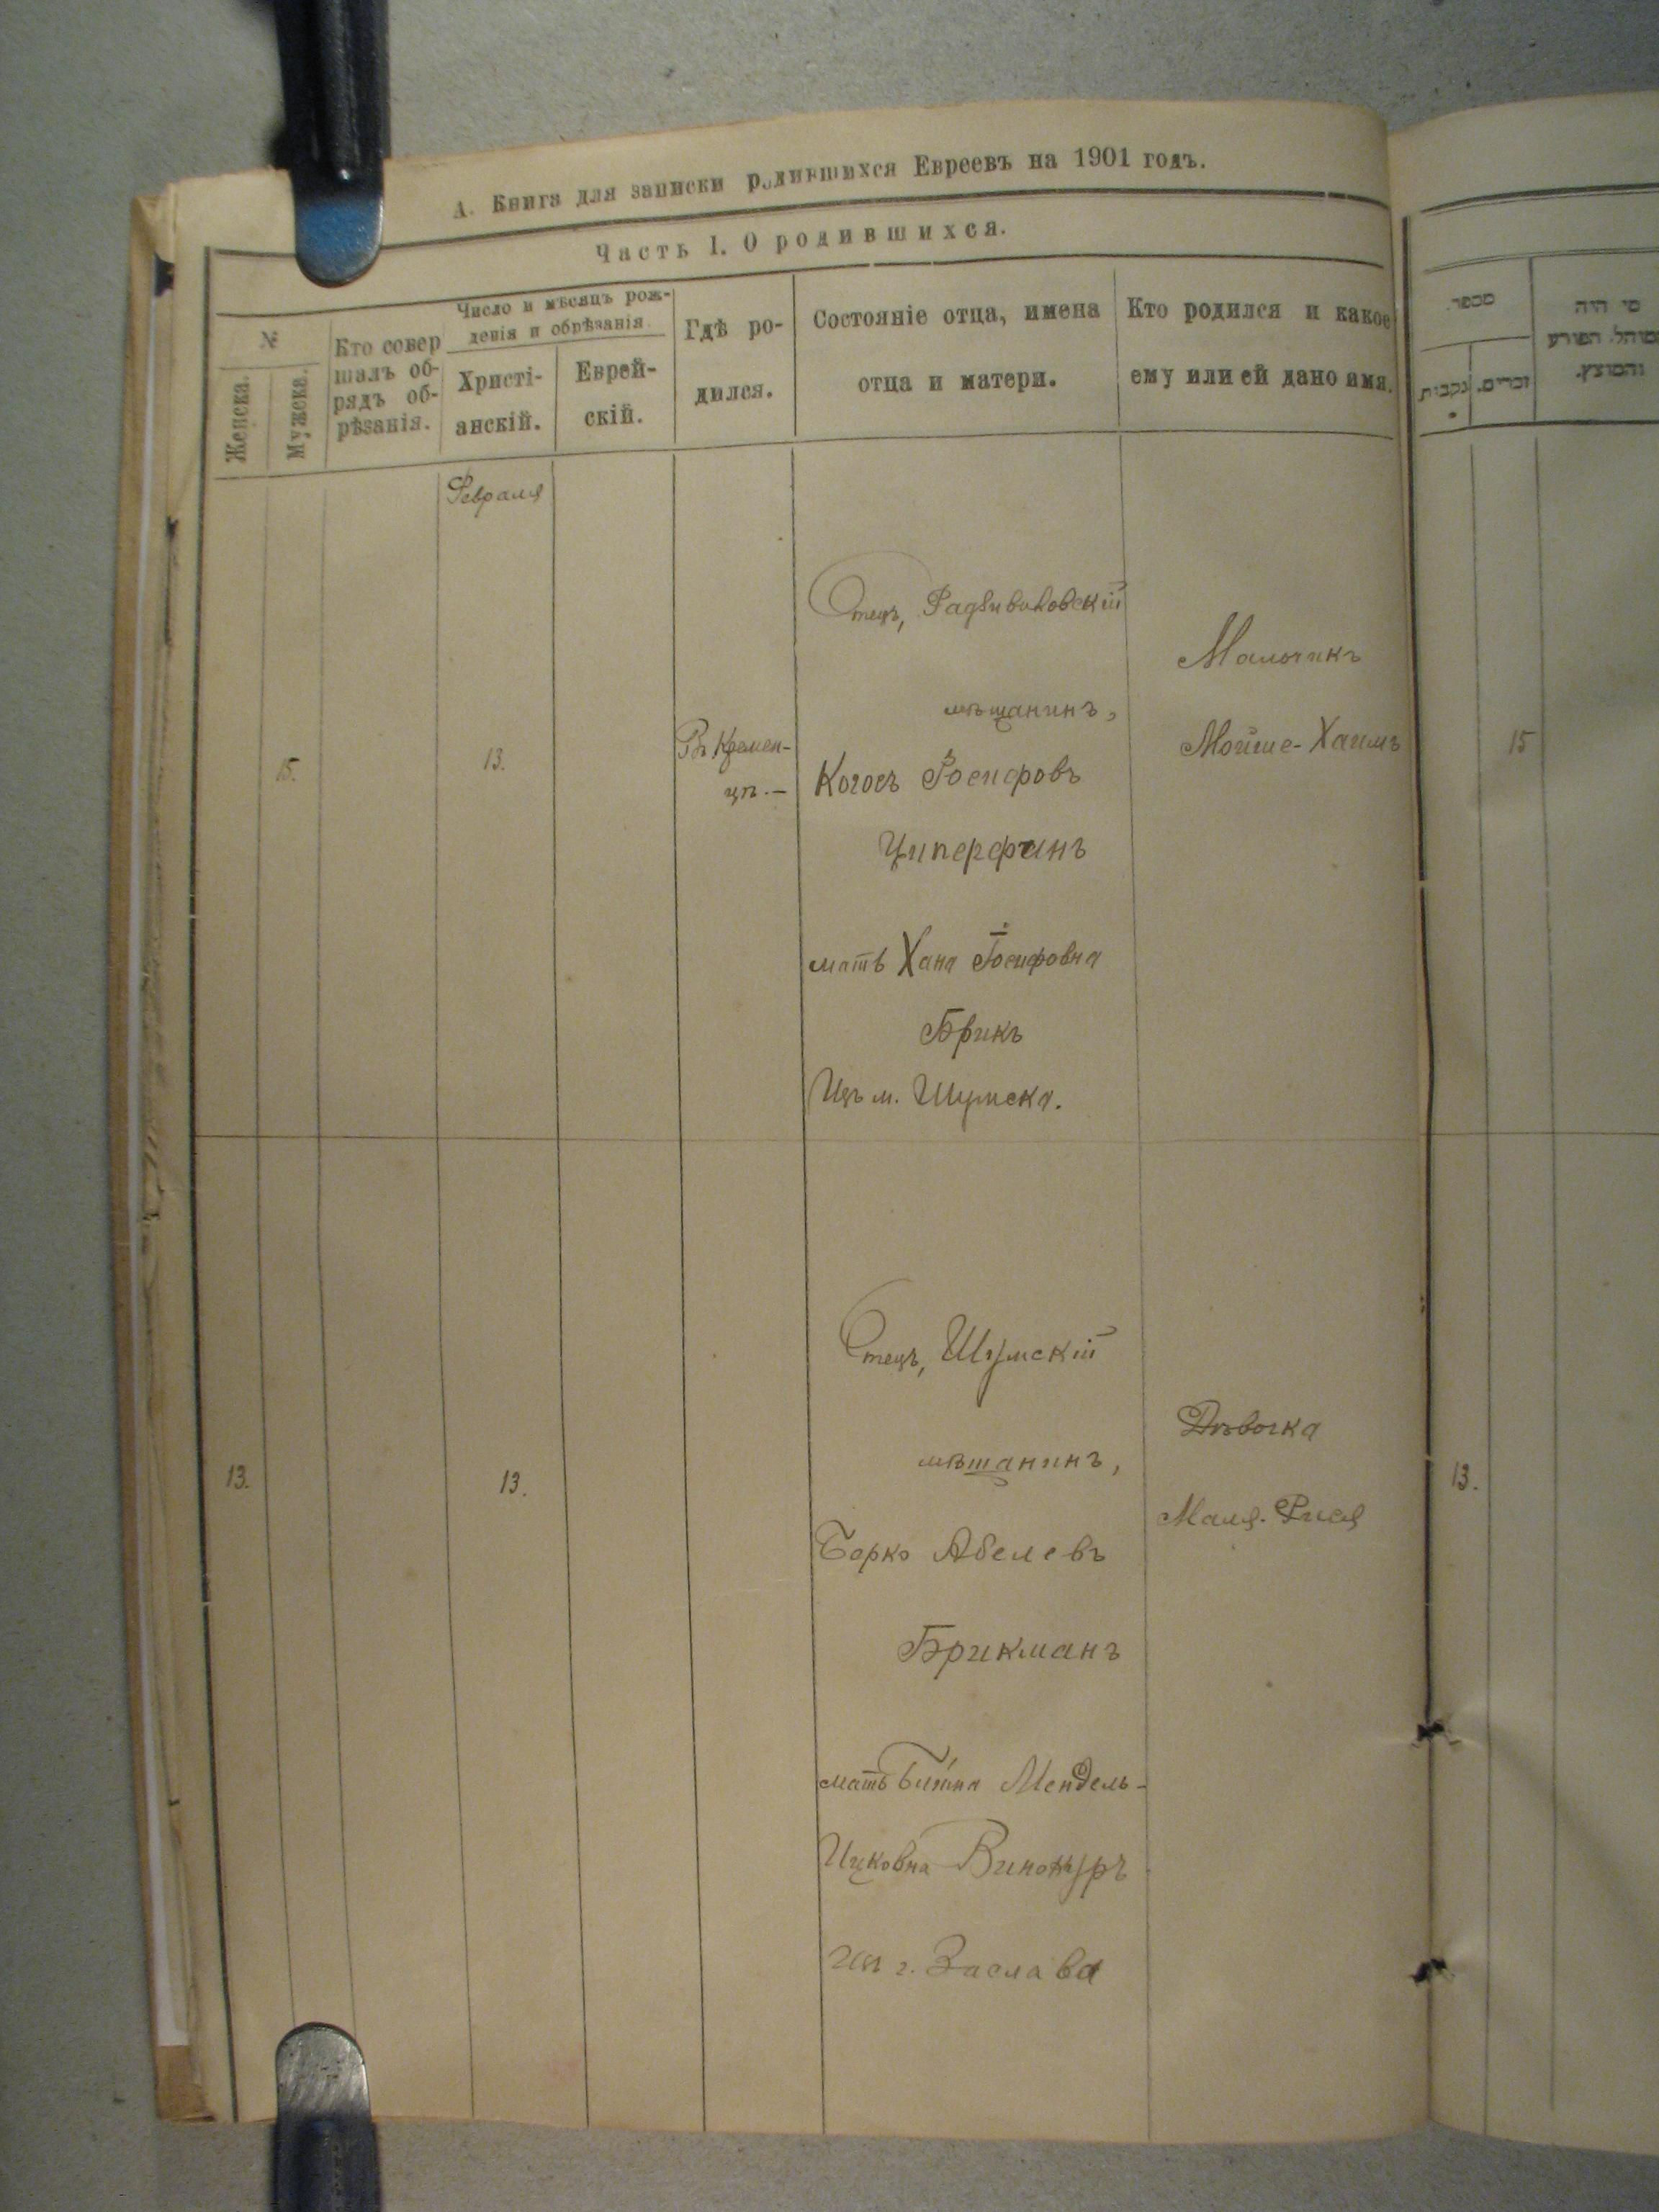 А. Книга для записки родившихся Евреевъ на 1901 годъ.
Часть I. О родившихся.
№
Женска.
Мужска.
Кто совер
шалъ об-
рядъ об-
рѣзанія.
Число и мѣсяцъ рож-
денія и обрѣзанія.
Христі-
анскій.
Еврей-
скій.
Гдѣ ро-
дился.
Состояніе отца, имена
отца и матери.
Кто родился и какое
ему или ей дано имя.
Февраля
15.
13.
Въ Кремен-
цѣ.—
Отецъ, Радзивиловскій
мѣщанинъ,
Іосифовъ
Циперфинъ
мать Хана Іосифовна
Брикъ
Изъ м. Шумска.
Мальчикъ
Мойше-Хаимъ
13.
13.
Отецъ, Шумскій
мѣщанинъ,
Берко Абелевъ
Брикманъ
мать Мендель-
Ицковна Винокуръ
изъ г. Заслава
Дѣвочка
Маля-Рися
מספר.
נקבות
זכרים.
מי היה
המוהל, הפורע
והמוצץ.
15
13.